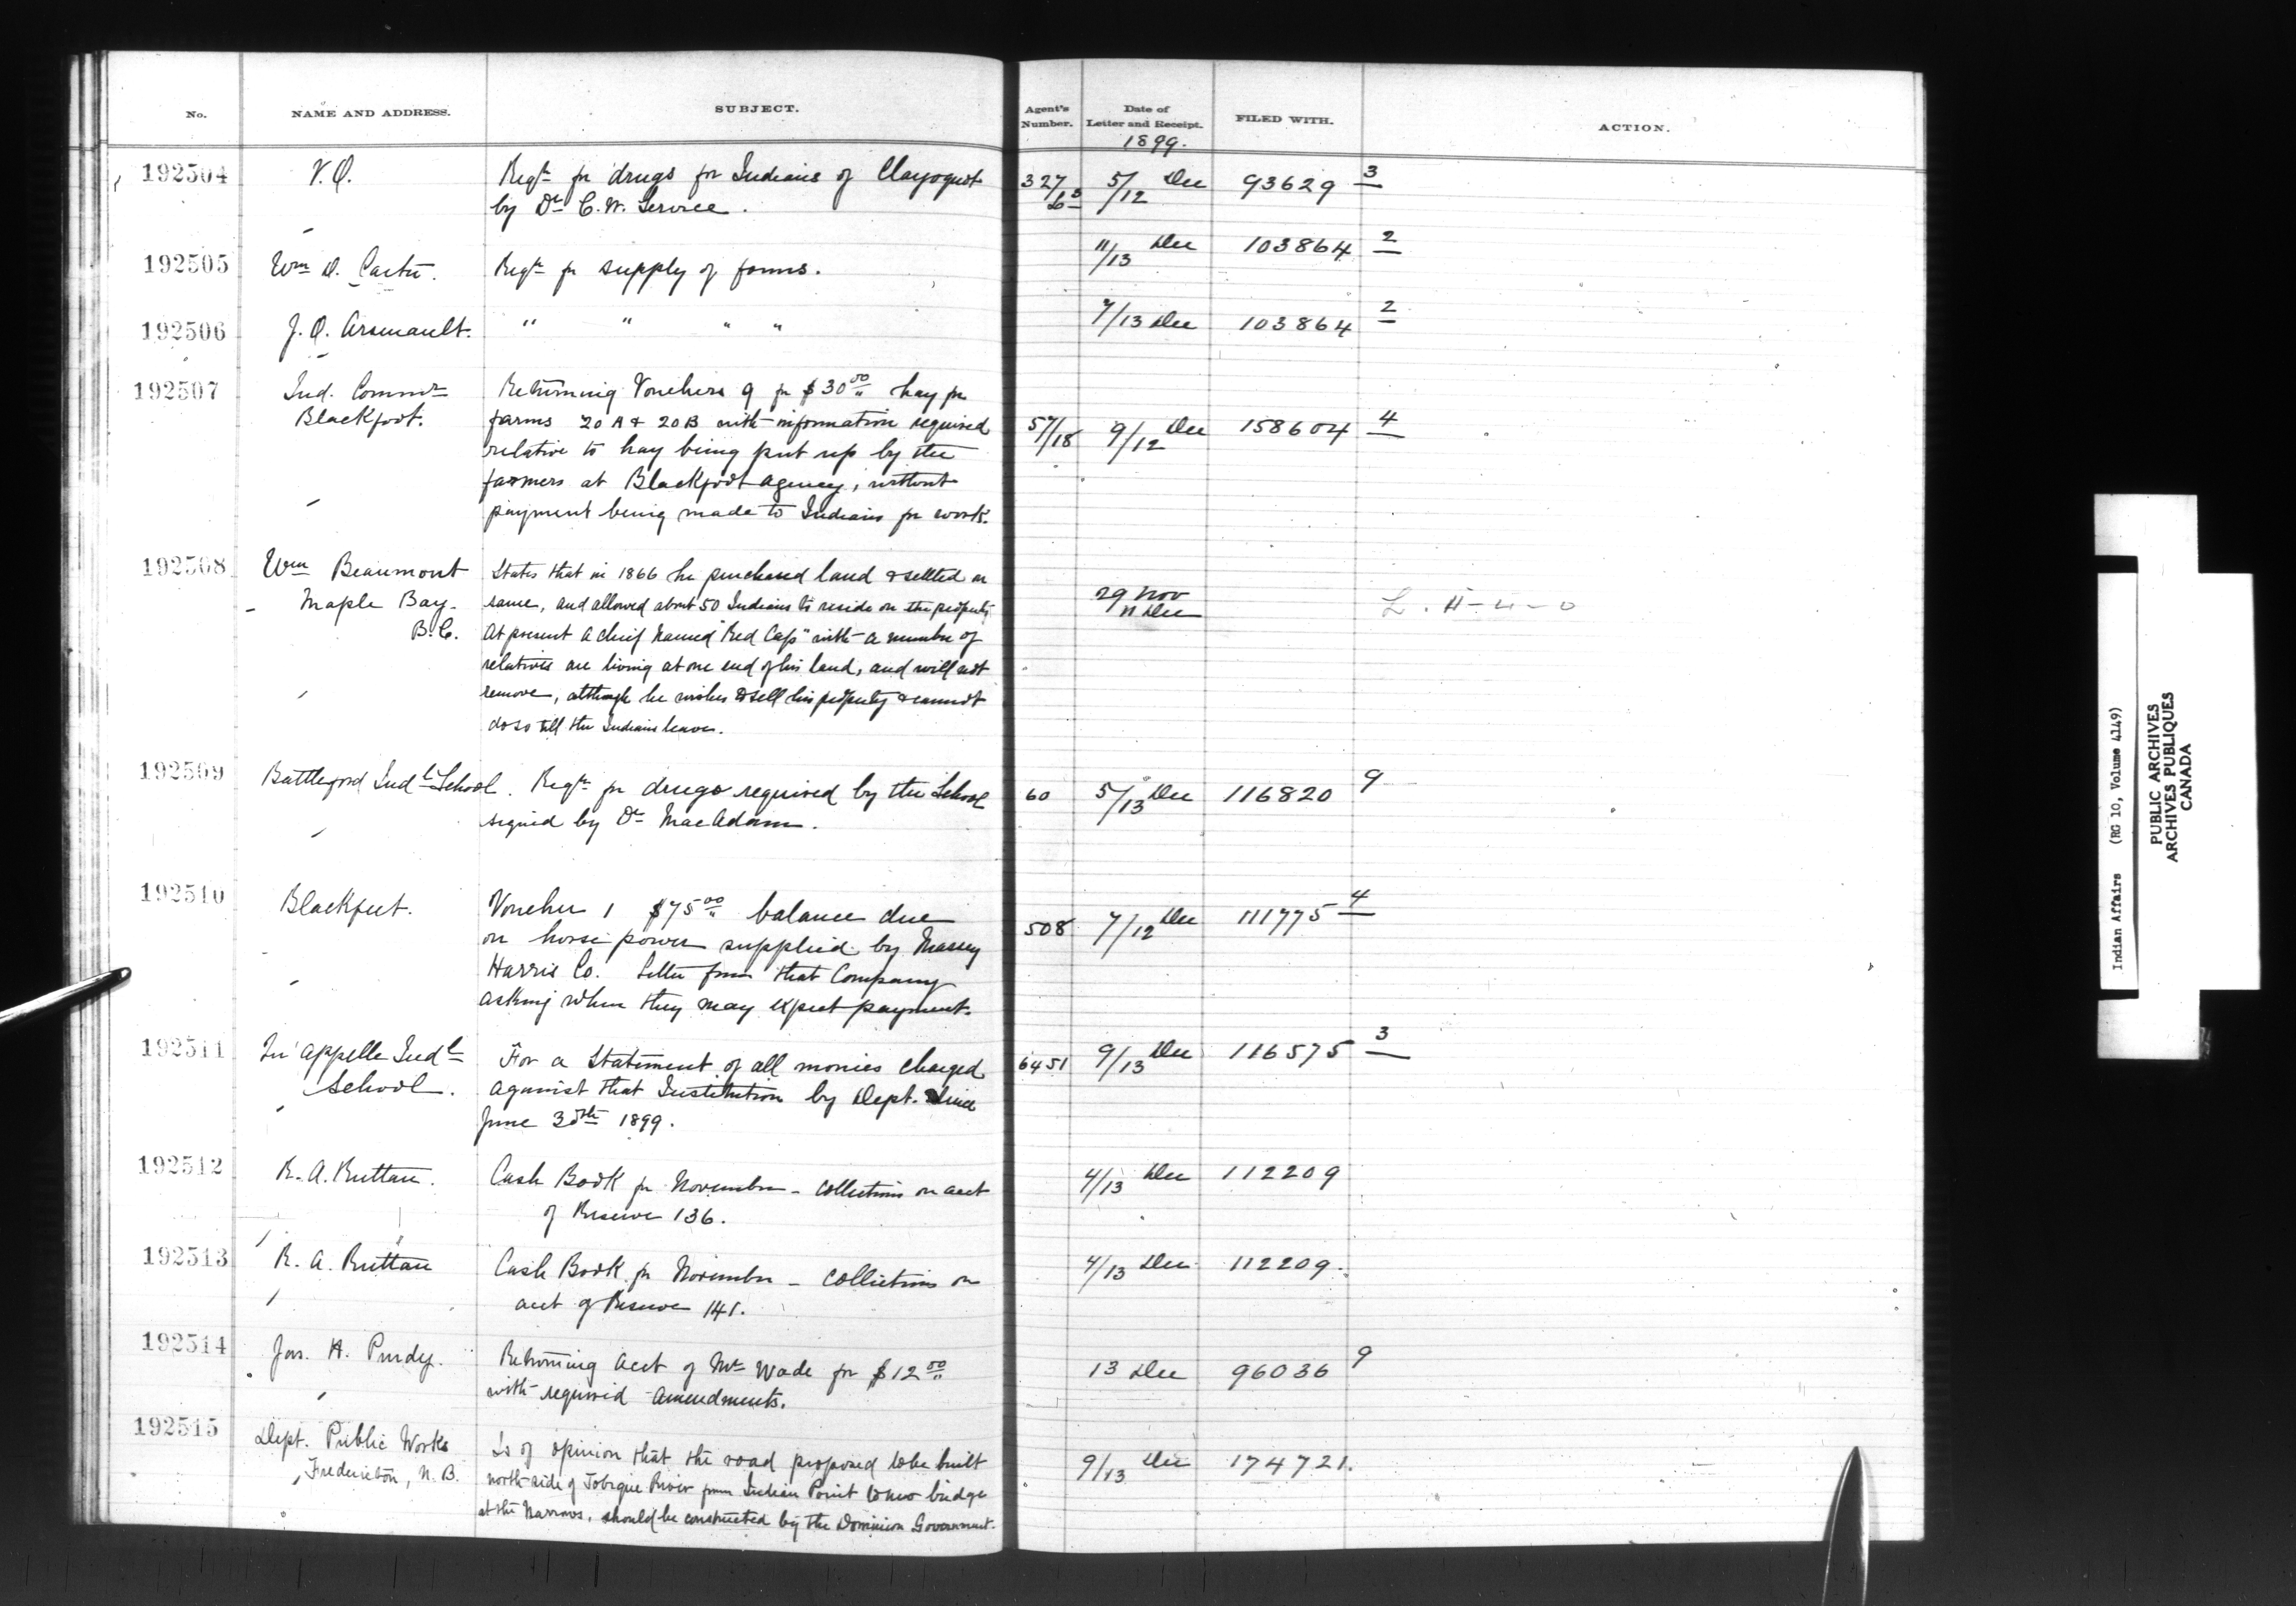 No. NAME AND ADDRESS. SUBJECT. Agent's Number. Date of Letter and Receipt. FILED WITH. ACTION.
1899.
192504 V.O. Reqn for drugs for Indians of Clayoquot 327/ 5/12 Dec 93629 3
by Dr C.W. Service.
192505 Wm D. Carter. Reqn for supply of forms. 11/13 Dec 103864 2
192506 J.O. Arsenault. " " " " 7/13 Dec 103864 2
192507 Ind. Commr Returning Vouchers 9 for $30.00 hay for
Blackfoot. farms 20 A & 20B with information required 57/18 9/12 Dec 158604 4
relative to hay being put up by the
farmers at Blackfoot Agency, without
payment being made to Indians for work.
192508 Wm Beaumont States that in 1866 he purchased land & settled on
Maple Bay same, and allowed about 50 Indians to reside on the property 29 Nov
11 Dec
B.C. At present a chief named "Red Cap" with a number of
relatives are living at one end of his land, and will not
remove, although he wishes to sell his property & cannot
do so till the Indians leave.
192509 Battleford Indl School. Reqn for drugs required by the School 60 5/13 Dec 116820 9
signed by Dr MacAdam.
192510 Blackfeet. Voucher 1 $75.00 balance due 508 7/12 Dec 111775 4
on horse power supplied by Massey
Harris Co. Letter from that Company
asking when they may expect payment.
192511 Qu'appelle Indl For a Statement of all monies charged 6451 9/13 Dec 116575 3
School. against that Institution by Dept. since
June 30th 1899.
192512 R.A. Ruttan. Cash Book for November - collections on acct 4/13 Dec 112209
of Reserve 136.
192513 R.A. Ruttan Cash Book for November - collections on 4/13 Dec 112209.
acct of Reserve 141.
192514 Jas. H. Purdy. Returning acct of Mr Wade for $12.00 13 Dec 96036 9
with required amendments.
192515 Dept. Public Works Is of opinion that the road proposed to be built 9/13 Dec 174721.
Fredericton, N.B. north side of Tobique River from Indian Point to new bridge
at the Narrows, should be constructed by the Dominion Government.
Indian Affairs (RG 10, Volume 4149)
PUBLIC ARCHIVES
ARCHIVES PUBLIQUES
CANADA